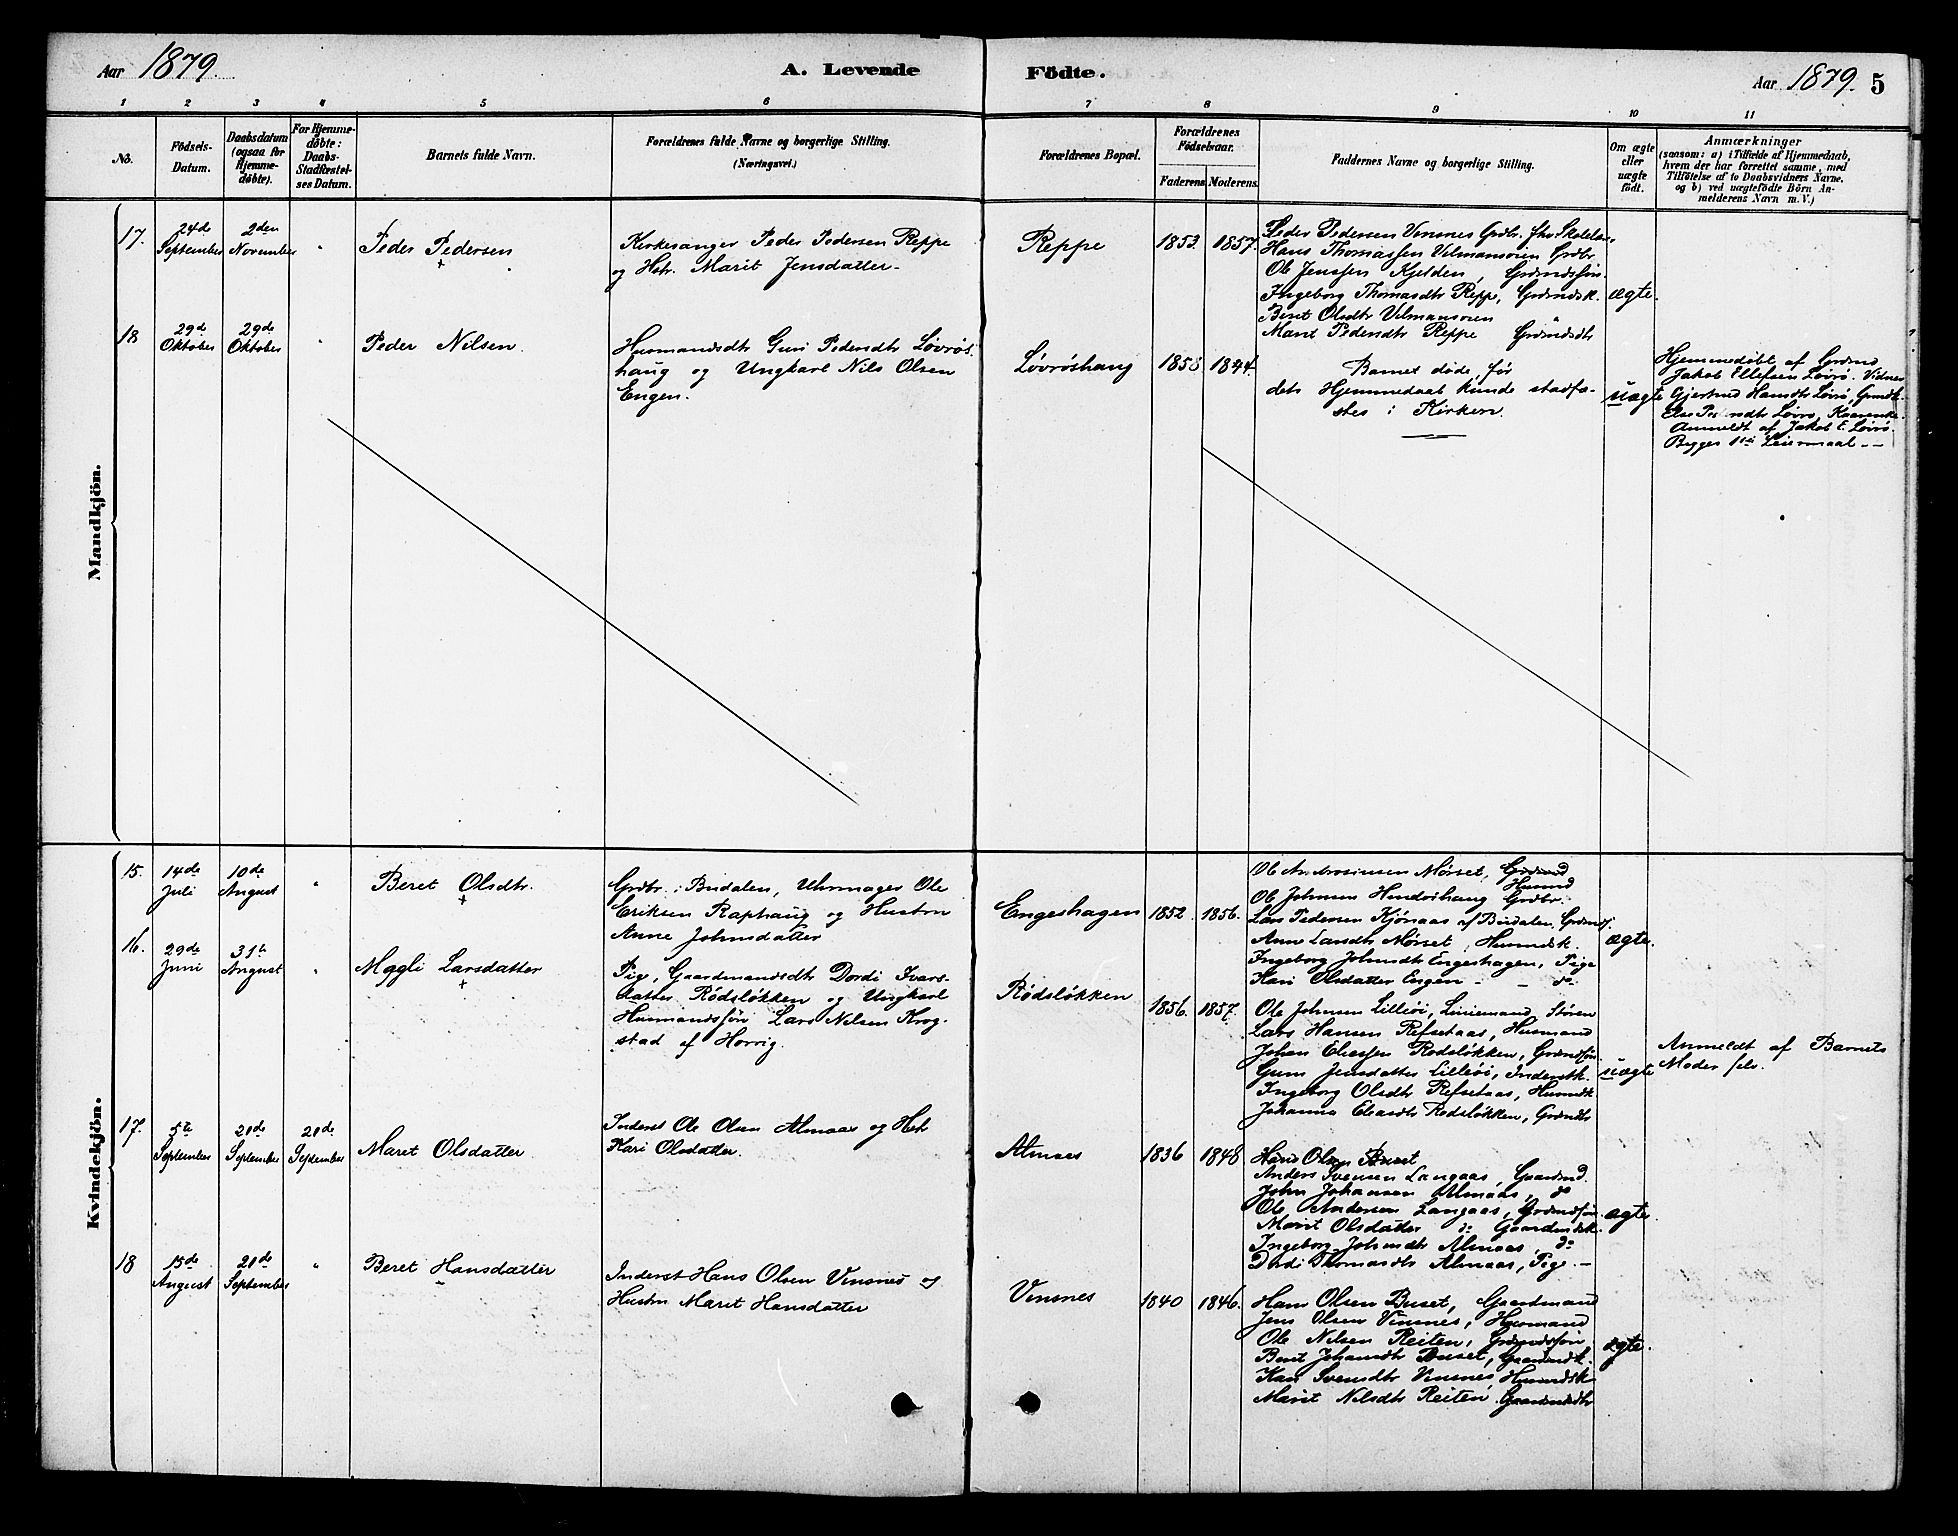 Aar 1879.
A. Levende Födte.
Aar 1879. 5
1 2 3 4 5 6 7 8 9 10 11
No.
Födsels-
Datum.
Daabsdatum
(ogsaa for
Hjemme-
döbte).
For Hjemme-
döbte:
Daabs-
Stadfæstel-
ses Datum.
Barnets fulde Navn.
Forældrenes fulde Navne og borgerlige Stilling.
(Næringsvei.)
Forældrenes Bopæl.
Forældrenes
Födselsaar.
Faderens Moderens
Faddernes Navne og borgerlige Stilling.
Om ægte
eller
uægte
födt.
Anmærkninger
(saasom: a) i Tilfælde af Hjemmedaab,
hvem der har forrettet samme, med
Tilföielse af to Daabsvidners Navne,
og b) ved uægtefödte Börn An-
melderens Navn m. V.)
Mandkjön.
17.
24de
September
2den
November
"
Peder Pedersen
+
Kirkesanger Peder Pedersen Reppe
og Hstr. Marit Jensdatter
Reppe
1853 1857.
Peder Pedersen Vensnes Grdbr. fhv. Skolelær.
Hans Thomassen Vilmansøien Grdbr.
Ole Jenssen Kjelden, Grdmdssøn.
Ingeborg Thomasdtr Reppe, Grdmdsk.
Berit Olsdtr Vilmansøien "
Marit Pedersdtr Reppe Grdmdsdtr
ægte.
18
29de
Oktober
29de
Oktober
"
Peder Nilsen.
Husmandsdtr Guri Pedersdtr Løvrøs
haug og Ungkarl Nils Olsen
Engen.
Løvrøshaug
1858 1844.
Barnet døde, før
dets Hjemmedaab kunde stadfæ-
stes i Kirken.
uægte
Hjemmedøbt af Grdmd
Jakob Ellefsen Løvrø. Vidner
Gjertrud Hansdtr Løvrø, Grmdk.
Else Pedersdtr Løvrø, Kaarenke.
Anmeldt af Jakob E. Løvrø.
Begges 1ste Leiermaal --
Kvindekjön.
15.
14de
Juli
10de
August
"
Beret Olsdtr.
+
Grdbr. i Budalen, Uhrmager Ole
Eriksen Raphaug og Hustru
Anne Johnsdatter
Engeshagen
1852 1856.
Ole Ambrosiussen Mørset, Grdmd
Ole Johnsen Hendrishaug Grdbr.
Lars Pedersen Kjønaas af Budalen, Grdmdss.
Anne Larsdtr Mørset, Husmdsk.
Ingeborg Johnsdtr Engeshagen, Pige
Kari Olsdatter Engen - - do
ægte.
16.
29de
Juni
31te
August
"
Magli Larsdatter
+
Pige, Gaardmandsdtr Dordi Ivars-
datter Rødsløkken og Ungkarl
Husmandssøn Lars Nilsen Krog-
stad af Horrig.
Rødsløkken
1856. 1857.
Ole Johnsen Lilleøi, Liniemand, Støren
Lars Hansen Refsetaas, Husmand
Johan Eliassen Rødsløkken, Grdmdssøn.
Guru Jensdatter Lilleøi, Inderstk.
Ingeborg Olsdtr Refsetaas, Husmdk
Johanna Eliasdtr Rødsløkken, Grdmdtr
uægte
Anmeldt af Barnets
Moder selv.
17.
5te
September
21de
September
21de
September
Maret Olsdatter
Inderst Ole Olsen Almaas og Hstr
Kari Olsdatter.
Almaas
1836 1848
Hans Olsen Buset
Anders Svensen Langaas, Gaardmd.
John Johansen Almaas, do
Ole Andersen Langaas, Grdmdssøn
Marit Olsdatter do Gaardmdsk.
Ingeborg Johnsdtr Almaas, do
Dordi Thomasdtr Almaas, Pige.
ægte.
18
15de
August
21de
September
"
Beret Hansdatter
Inderst Hans Olsen Vensnes og
Hustru Maret Hansdatter
Vensnes
1840 1846.
Hans Olsen Buset, Gaardmand
Jens Olsen Vensnes, Husmand
Ole Nilsen Reiten, Grdmdssøn
Berit Johansdtr Buset, Gaardmdk.
Kari Svensdtr Vensnes, Husmdsk
Marit Nilsdtr Reiten Gaardmdsdtr
ægte.